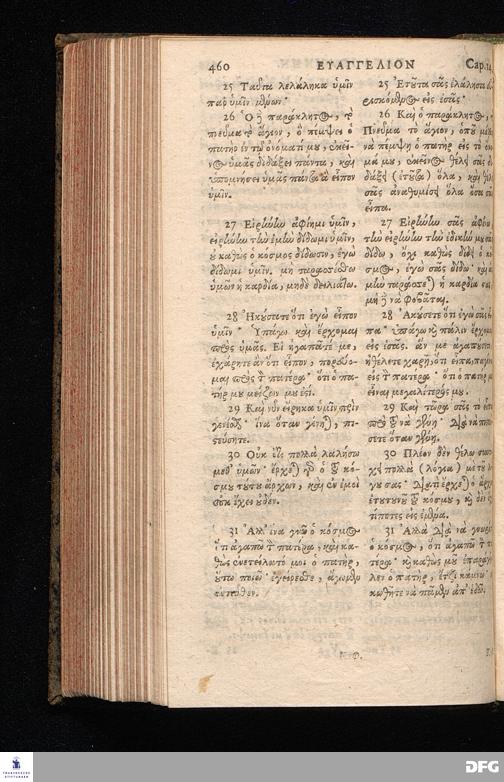 460 ΕΥΑΓΓΕΛΙΟΝ Cap.14
25 Ταῦτα λελάληκα ὑμῖν
παρ' ὑμῖν μένων·
26 Ὁ δὲ παράκλητος, τὸ
πνεῦμα τὸ ἅγιον, ὃ πέμψει ὁ
πατὴρ ἐν τῷ ὀνόματί μου, ἐκεῖ-
νος ὑμᾶς διδάξει πάντα, καὶ
ὑπομνήσει ὑμᾶς πάντα ἃ εἶπον
ὑμῖν.
27 Εἰρήνην ἀφίημι ὑμῖν,
εἰρήνην τὴν ἐμὴν δίδωμι ὑμῖν,
οὐ καθὼς ὁ κόσμος δίδωσιν, ἐγὼ
δίδωμι ὑμῖν. μὴ ταρασσέσθω
ὑμῶν ἡ καρδία, μηδὲ δειλιάτω.
28 Ἠκούσατε ὅτι ἐγὼ εἶπον
ὑμῖν· Ὑπάγω καὶ ἔρχομαι
πρὸς ὑμᾶς. Εἰ ἠγαπᾶτέ με,
ἐχάρητε ἂν ὅτι εἶπον, πορεύο-
μαι πρὸς τὸν πατέρα· ὅτι ὁ πα-
τήρ μου μείζων μου ἐστί.
29 Καὶ νῦν εἴρηκα ὑμῖν πρὶν
γενέσθαι· ἵνα ὅταν γένηται, πι-
στεύσητε.
30 Οὐκ ἔτι πολλὰ λαλήσω
μεθ' ὑμῶν· ἔρχεται γὰρ ὁ τοῦ κό-
σμου τούτου ἄρχων, καὶ ἐν ἐμοὶ
οὐκ ἔχει οὐδέν.
31 Ἀλλ' ἵνα γνῷ ὁ κόσμος
ὅτι ἀγαπῶ τὸν πατέρα, καὶ κα-
θὼς ἐνετείλατό μοι ὁ πατὴρ,
οὕτω ποιῶ· ἐγείρεσθε, ἄγωμεν
ἐντεῦθεν.
25 Ἐτοῦτα σᾶς ἐλάλησα
εὑρισκόμενος εἰς ἐσᾶς·
26 Καὶ ὁ παράκλητος,
Πνεῦμα τὸ ἅγιον, ὁποῦ
νὰ πέμψῃ ὁ πατὴρ εἰς τὸ
μά μου, ἐκεῖνος θέλει σᾶς
δάξει (ἐτοῦτα) ὅλα, καὶ
σᾶς ἀναθυμίσει ὅλα ὅσα
εἶπα.
27 Εἰρήνην σᾶς
τὴν εἰρήνην τὴν ἐδικήν μου
δίδω, ὄχι καθὼς δίδει ὁ
σμος, ἐγὼ σᾶς δίδω· καὶ
μὴν ταράσσεται ἡ καρδία
μηδὲ νὰ φοβᾶται.
28 Ἀκούσετε ὅτι ἐγὼ
πα· ὑπάγω καὶ πάλιν
εἰς ἐσᾶς. ἂν με
ἠθέλετε χαρῆ, ὅτι εἶπα,
εἰς τὸν πατέρα· ὅτι ὁ
εἶναι μεγαλίτερός μου.
29 Καὶ τώρα σᾶς τὸ
πρὸ τοῦ νὰ γένῃ· διὰ νὰ
σετε ὅταν γένῃ.
30 Πλέον δὲν θέλω
πολλὰ (λόγια) με τ'
σας· διατὶ ἔρχεται ὁ
ἐτουτουνοῦ τοῦ κόσμου, καὶ δὲν
τίποτες εἰς ἐμένα.
31 Ἀλλὰ διὰ νὰ
ὁ κόσμος, ὅτι ἀγαπῶ τὸν
τέρα· καὶ καθὼς μοῦ
λεν ὁ πατὴρ, ἔτζι κάμνω·
κωθῆτε νὰ πᾶμεν ἀπ' ἐδῶ.
FRANCKESCHE
STIFTUNGEN
DFG